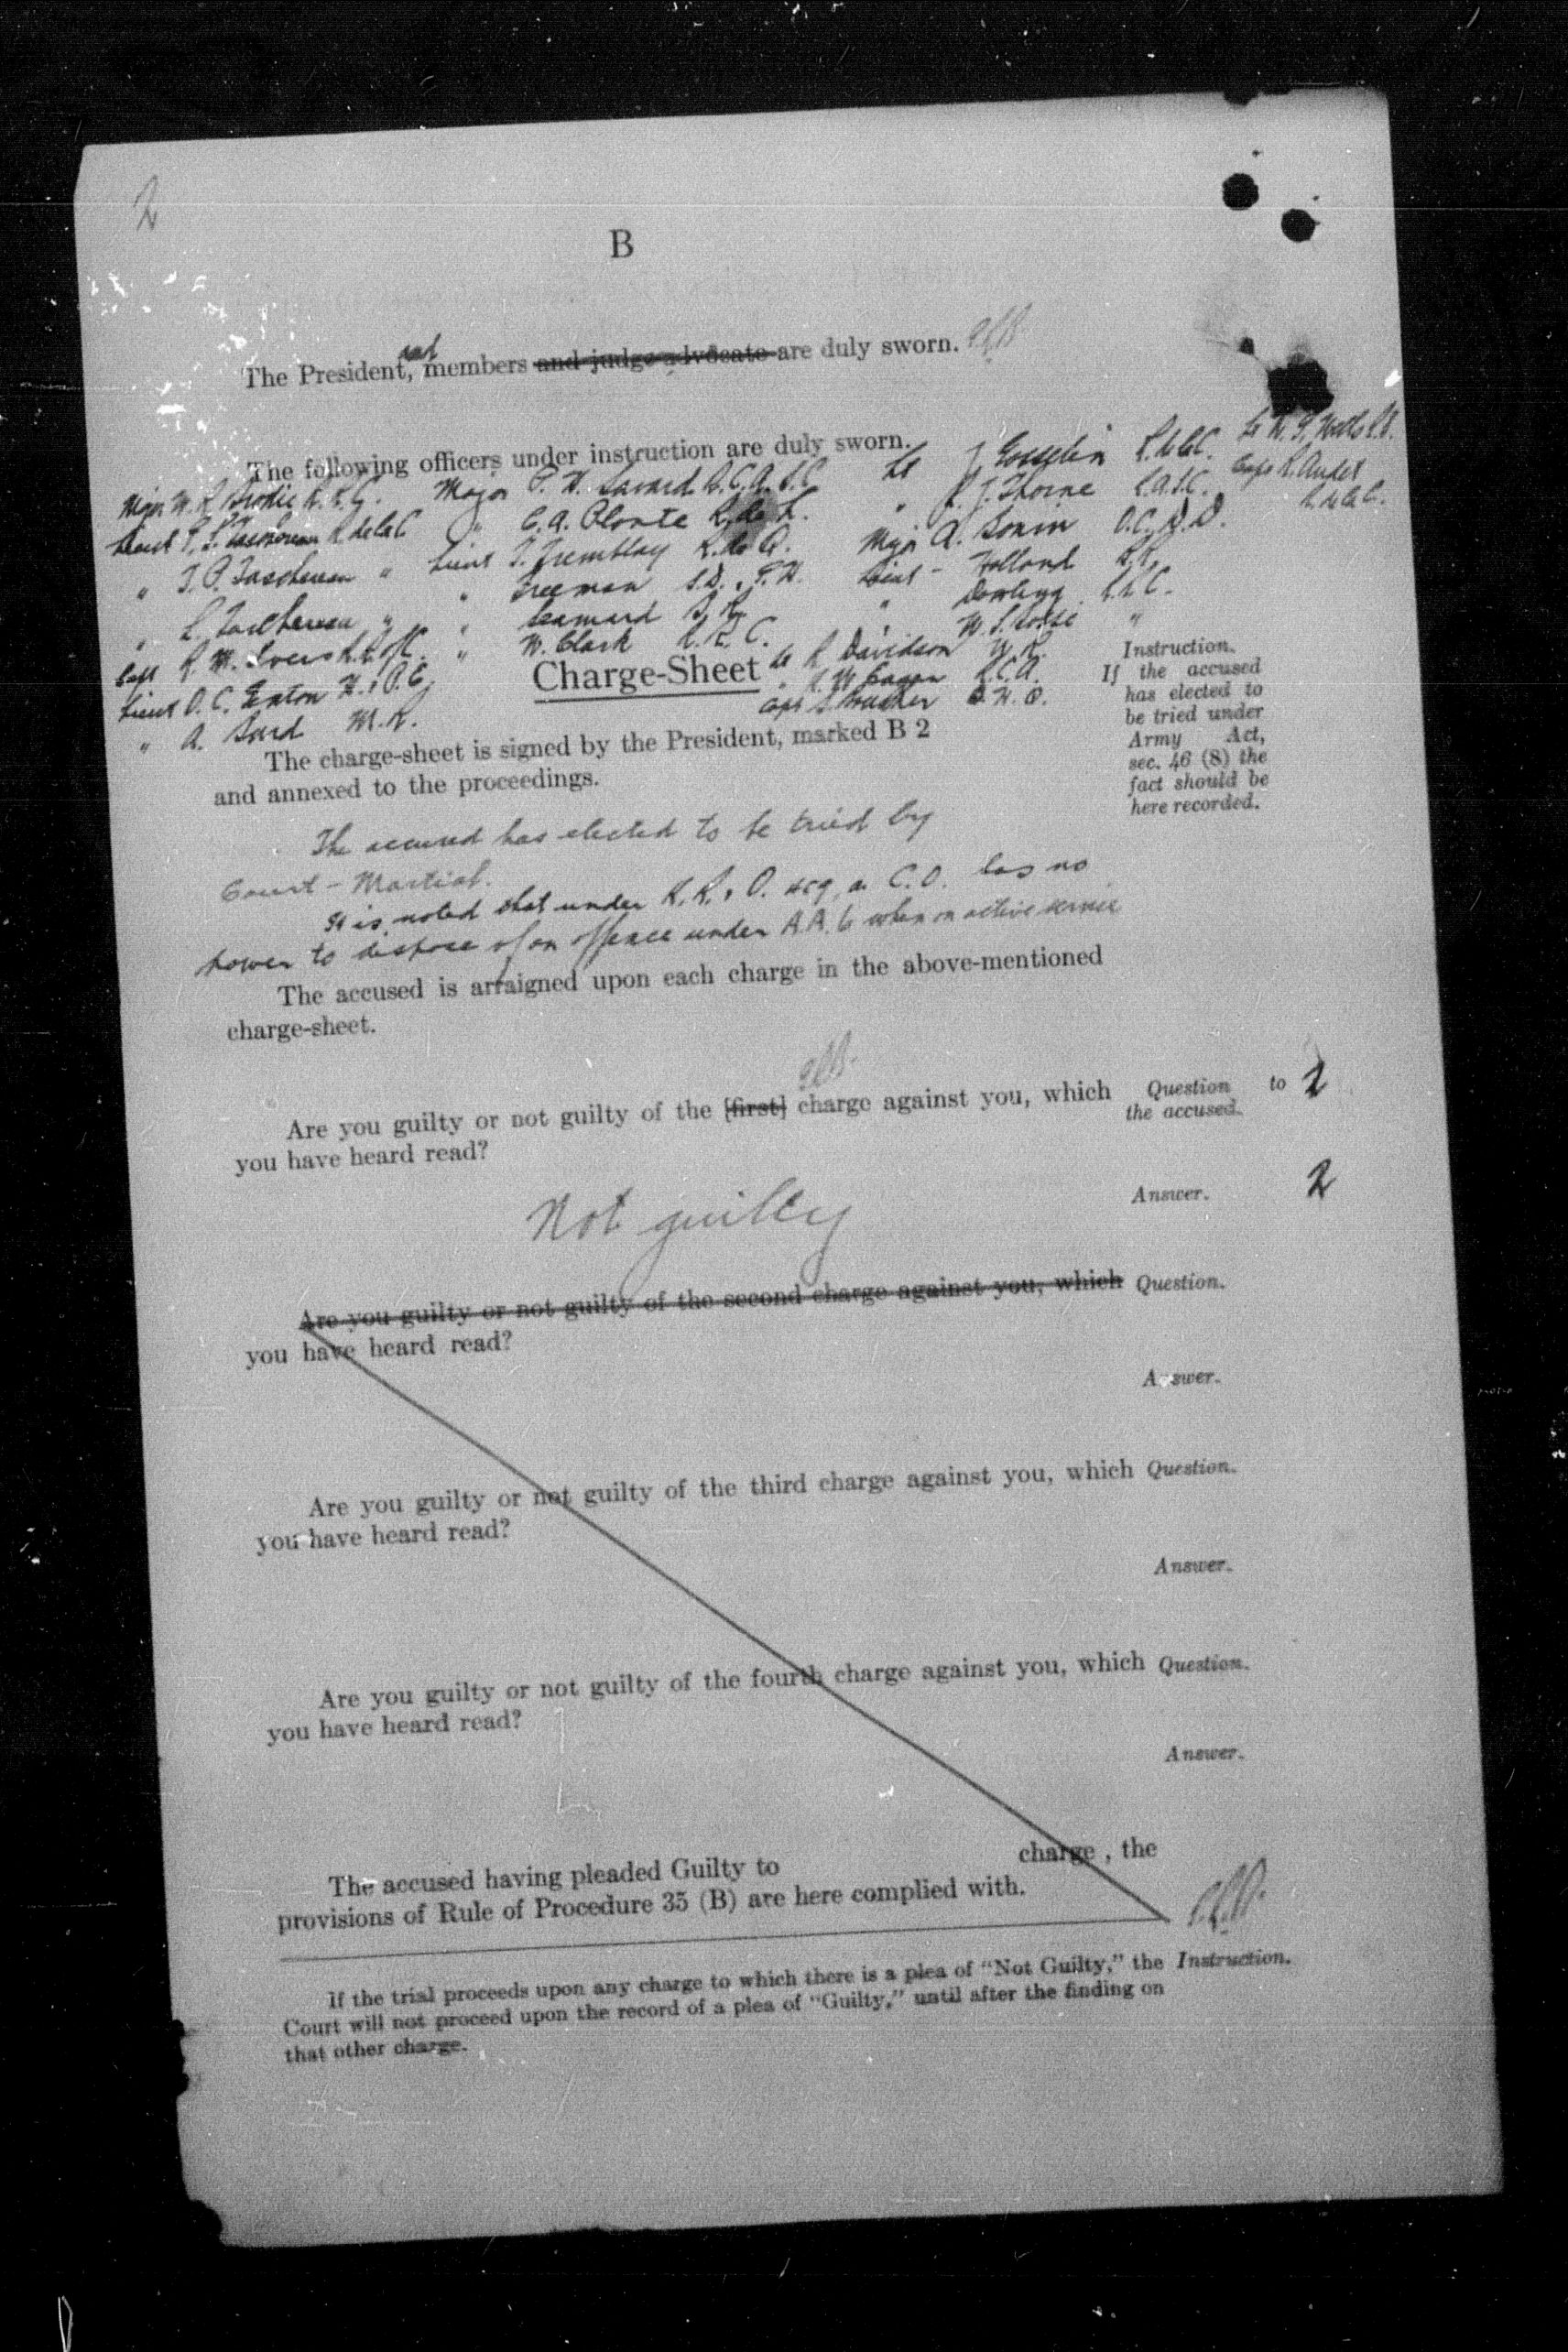 2
B
The President, and members and judge advocate are duly sworn.
The following officers under instruction are duly sworn.
Major W. R. Brodie Major P. H. Savard Lt J Gosselin R. de C.
Lieut " C. A. Plante " R. J. Thorne C.A.S.C. Capt R. Audet
" Lieut J. Tremblay Major A. Bonin
" " Freeman Lieut - Holland
Capt R. M. " W. Clark " Dowling
Lieut O. C. Eaton Lt R Davidson
" A. M.R. Capt
Charge-Sheet
Instruction.
If the accused
has elected to
be tried under
Army Act,
sec. 46 (8) the
fact should be
here recorded.
The charge-sheet is signed by the President, marked B 2
and annexed to the proceedings.
The accused has elected to be tried by
Court-Martial.
It is noted that under K.R. & O. 459, a C.O. has no
power to dispose of an offence under A.A. 6 when on active service
The accused is arraigned upon each charge in the above-mentioned
charge-sheet.
Are you guilty or not guilty of the [first] charge against you, which Question to 1
you have heard read? the accused.
Answer. 2
Not guilty
Are you guilty or not guilty of the second charge against you, which Question.
you have heard read?
Answer.
Are you guilty or not guilty of the third charge against you, which Question.
you have heard read?
Answer.
Are you guilty or not guilty of the fourth charge against you, which Question.
you have heard read?
Answer.
The accused having pleaded Guilty to charge , the
provisions of Rule of Procedure 35 (B) are here complied with.
If the trial proceeds upon any charge to which there is a plea of "Not Guilty," the Instruction.
Court will not proceed upon the record of a plea of "Guilty," until after the finding on
that other charge.